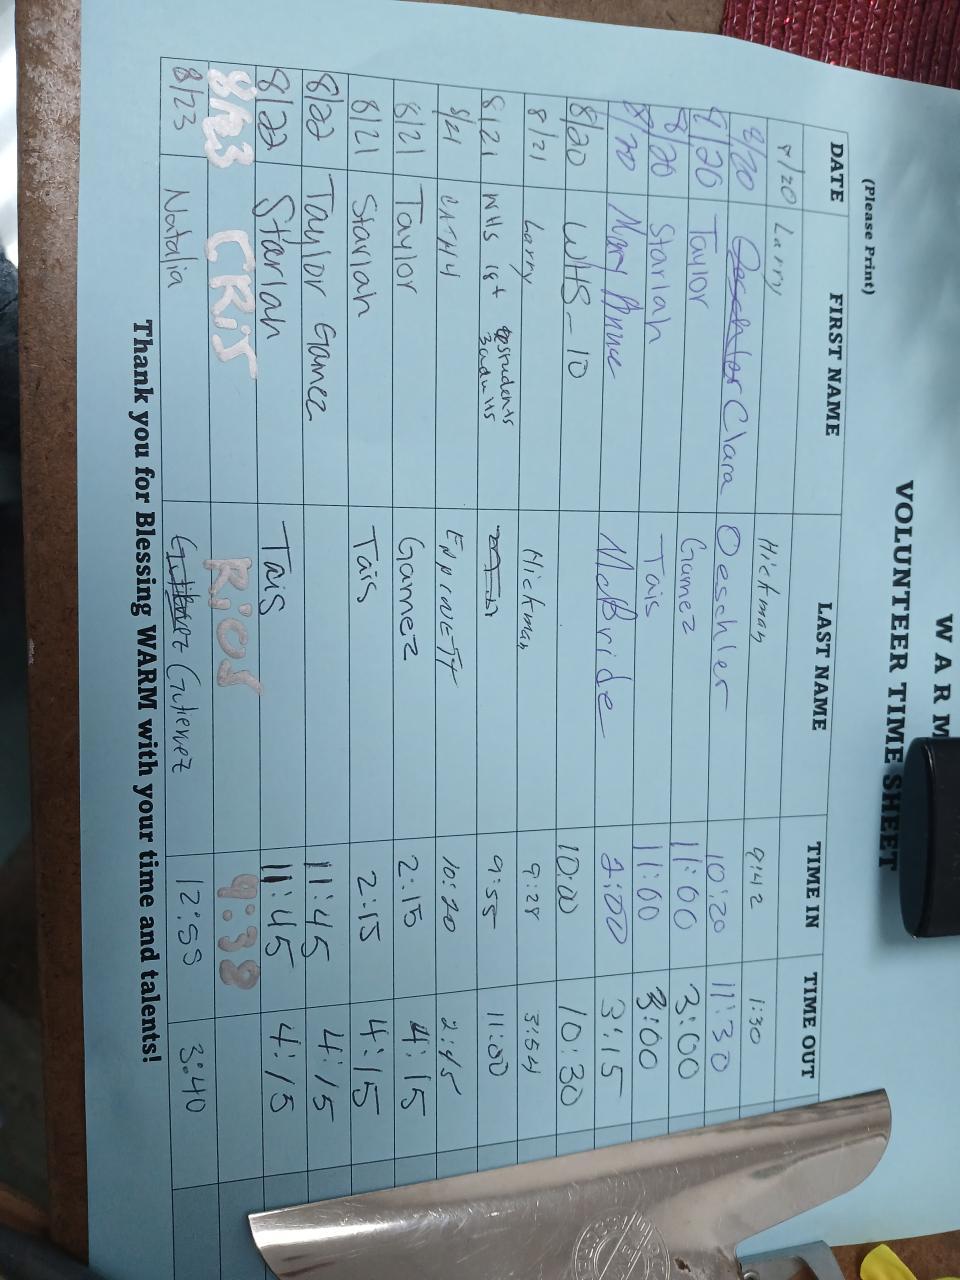 WARM
VOLUNTEER TIME SHEET
(Please Print)
DATE FIRST NAME LAST NAME TIME IN TIME OUT
8/20 Larry Hickman 9:42 1:30
8/20 Clara Oeschler 10:20 11:30
8/20 Taylor Gamez 11:00 3:00
8/20 Starlah Tais 11:00 3:00
8/20 Mary Anne McBride 1:00 3:15
8/20 WHS-10 10:00 10:30
8/21 Larry Hickman 9:28 3:54
8/21 students 3 adults 9:55 11:00
8/21 CATHY 10:20 2:45
8/21 Taylor Gamez 2:15 4:15
8/21 Starlah Tais 2:15 4:15
8/22 Taylor Gamez 11:45 4:15
8/22 Starlah Tais 11:45 4:15
8/23 CRis Rios 9:38
8/23 Natalia Gutierrez 12:58 3:40
Thank you for Blessing WARM with your time and talents!